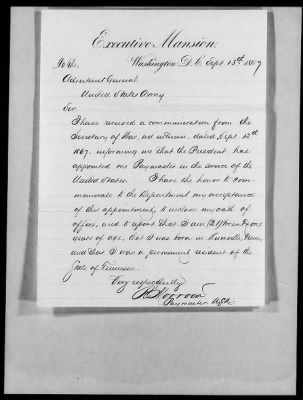 Executive Mansion.
Washington D.C. Sept. 13th 1867
To The
Adjutant General
United States Army
Sir
I have received a communication from the
Secretary of War, ad interim, dated Sept. 12th
1867. informing me that the President has
appointed me Paymaster in the service of the
United States. I have the honor to com-
municate to the Department my acceptance
of this appointment, to inclose my oath of
office, and to report that I am (21) Twenty one
years of age, that I was born in Knoxville, Tenn,
and that I was a permanent resident of the
State of Tennessee.
Very respectfully
Paymaster U.S.A.